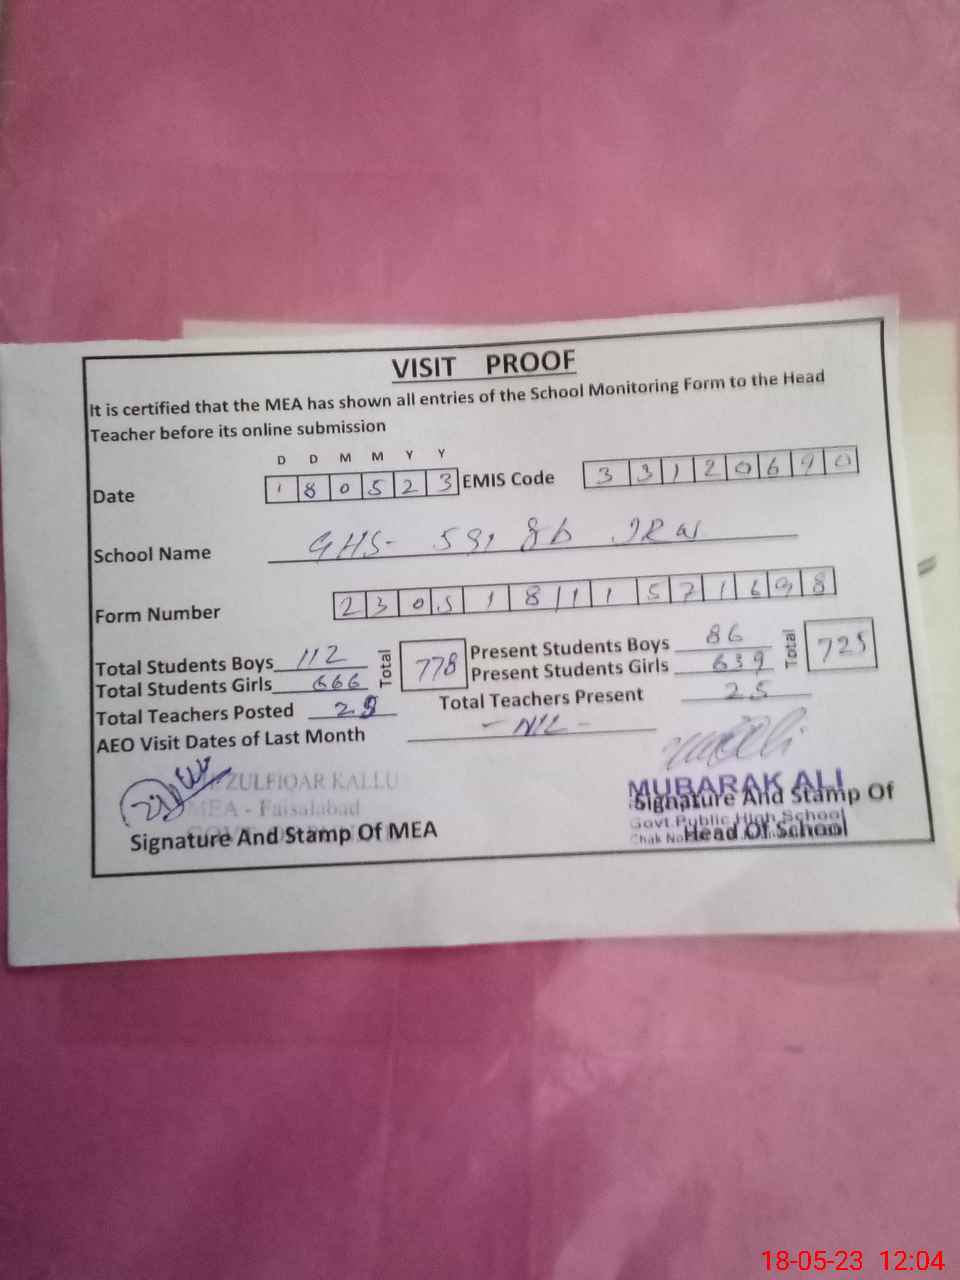 VISIT PROOF
It is certified that the MEA has shown all entries of the School Monitoring Form to the Head
Teacher before its online submission
D D M M Y Y
Date 1 8 0 5 2 3 EMIS Code 3 3 1 2 0 6 9 0
School Name GHS- 591 GB
Form Number 2 3 0 5 1 8 1 1 5 7 1 6 9 8
Total Students Boys 112 Total 778 Present Students Boys 86 Total 725
Total Students Girls 666 Present Students Girls 639
Total Teachers Posted Total Teachers Present 25
AEO Visit Dates of Last Month - NIL -
ZULFIQAR KALLU
MEA - Faisalabad
Signature And Stamp Of MEA
MUBARAK ALI
Signature And Stamp Of
Govt Public High School
Chak No
Head Of School
18-05-23 12:04